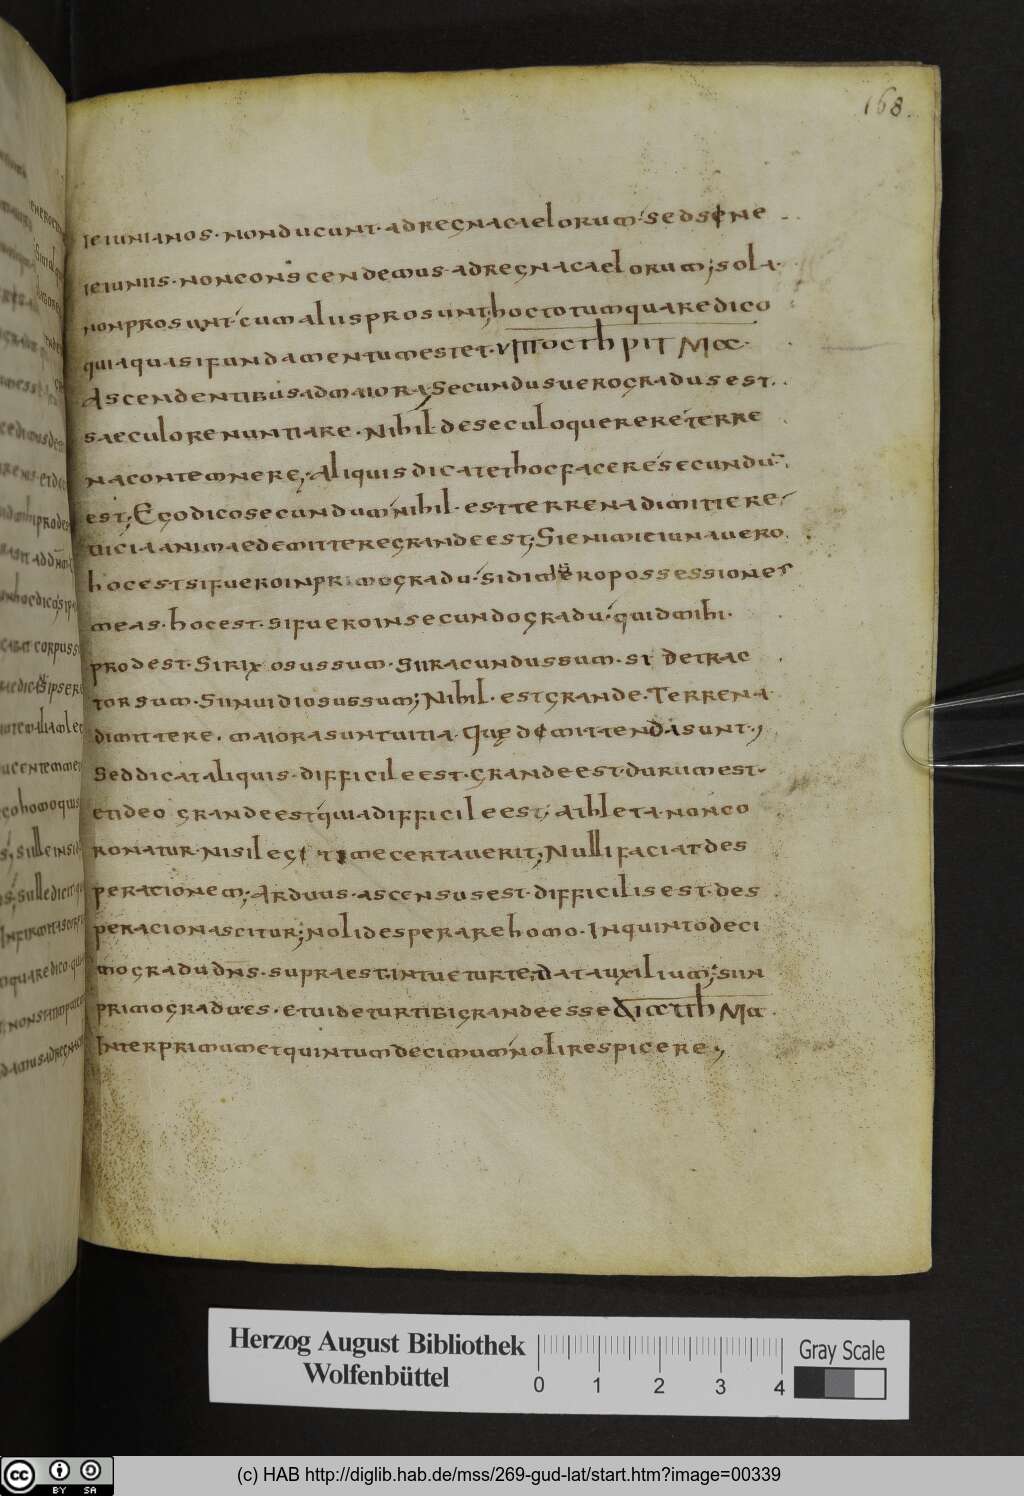 168.
ieiunianos. nonducunt. adregnacaelorum. sedsine
ieiuniis. nonconscendemus. adregnacaelorum; sola.
nonprosunt. cumaliisprosunt; hoctotumquaredico
quiaquasifundamentumestet.
Ascendentibusadmaiora; secundusuerogradusest.
saeculorenuntiare. Nihil. deseculoquerere. terre
nacontemnere; Aliquisdicatethocfacere. secundū
est; Egodicosecundum. nihil. estterrenadimittere.
uiciaanimaedemitteregrandeest; Sienimiciunauero
hocestsifueroinprimogradu. sidimiseropossessiones
meas. hocest. sifueroinsecundogradu. quidmihi.
prodest. Sirixosussum. Siiracundussum. si detrac
torsum. Siinuidiosussum; Nihil. estgrande. Terrena
dimittere. maiorasuntuitia. Quę demittendasunt;
Seddicataliquis. difficileest. grandeest. durumest.
etideo grandeest. quiadifficileest; Athleta. nonco
ronatur. nisilegitimecertauerit; Nullifaciatdes
perationem; Arduus. ascensusest. difficilisest. des
peracionascitur; nolidesperarehomo. Inquintodeci
mogradudn̄s. supraest. intueturte; datauxilium; siin
primograduęs. etuideturtibigrandeesse
Interprimumetquintumdecimum. nolirespicere;
Herzog August Bibliothek
Wolfenbüttel
0 1 2 3 4
Gray Scale
(c) HAB http://diglib.hab.de/mss/269-gud-lat/start.htm?image=00339
cc BY SA